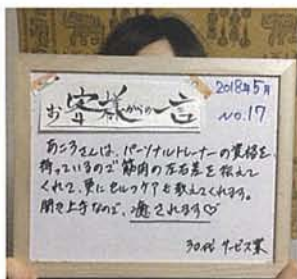 お客様からの一言
2018年5月
No.17
あころさんは、パーソナルトレーナーの資格を
持っているので筋肉の左右差を伝えて
くれて、更にセルフケアも教えてくれます。
聞き上手なので、癒されます♡
30代 サービス業